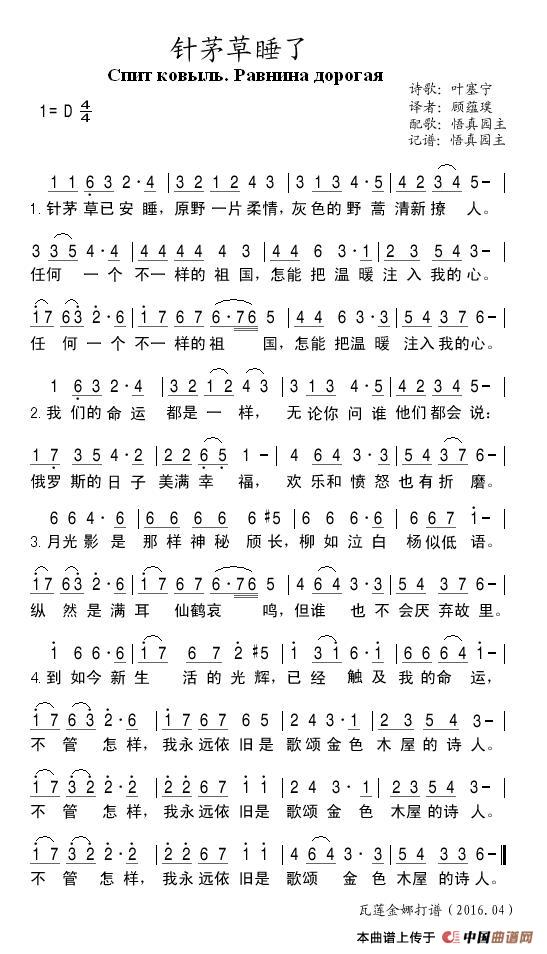 针茅草睡了
Спит ковыль. Равнина дорогая
诗歌：叶塞宁
1= D 4/4
译者：顾蕴璞
配歌：悟真园主
记谱：悟真园主
1 1 6 3 2·4 | 3 2 1 2 4 3 | 3 1 3 4·5 | 4 2 3 4 5- |
1.针茅草已安睡，原野一片柔情，灰色的野蒿清新撩人。
3 3 5 4·4 | 4 4 4 4 4 3 | 4 4 6 3·1 | 2 3 5 4 3- |
任何一个不一样的祖国，怎能把温暖注入我的心。
1 7 6 3 2·6 | 1 7 6 7 6·7 6 5 | 4 4 6 3·3 | 5 4 3 7 6- |
任何一个不一样的祖国，怎能把温暖注入我的心。
1 6 3 2·4 | 3 2 1 2 4 3 | 3 1 3 4·3 | 4 2 3 4 5- |
2.我们的命运都是一样，无论你问谁他们都会说：
1 7 3 5·4 | 2 2 6 5 1- | 4 6 4 3·3 | 5 4 3 7 6- |
俄罗斯的日子美满幸福，欢乐和愤怒也有折磨。
6 6 4·6 | 6 6 6 6 6 #5 | 6 6 6·6 | 6 6 7 1- |
3.月光影是那样神秘颀长，柳如泣白杨似低语。
1 7 6 3 2·6 | 1 7 6 7 6·7 6 5 | 4 6 4 3·3 | 5 4 3 7 6- |
纵然是满耳仙鹤哀鸣，但谁也不会厌弃故里。
1 6 6·6 | 1 7 6 7 2 #5 | 1 3 1 6·1 | 6 4 3 4 6- |
4.到如今新生活的光辉，已经触及我的命运，
1 7 6 3 2·6 | 1 7 6 7 6 5 | 2 4 3·1 | 2 3 5 4 3- |
不管怎样，我永远依旧是歌颂金色木屋的诗人。
1 7 3 2 2·2 | 2 2 6 7 1 1 | 2 4 3·2 | 2 3 5 4 3- |
不管怎样，我永远依旧是歌颂金色木屋的诗人。
1 7 3 2 2·2 | 2 2 6 7 1 1 | 4 6 4 3·3 | 5 4 3 7 6- ‖
不管怎样，我永远依旧是歌颂金色木屋的诗人。
瓦莲金娜打谱（2016.04）
本曲谱上传于 中国曲谱网